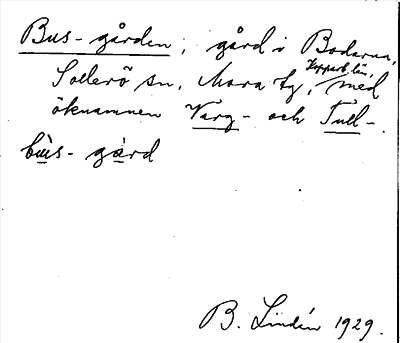 Bus-gården, gård i Bodarna,
Sollerö sn, Mora tg, Kopparb. län, med
öknamnen Varg- och Tull-.
bùs-gàrd
B. Lindén 1929.